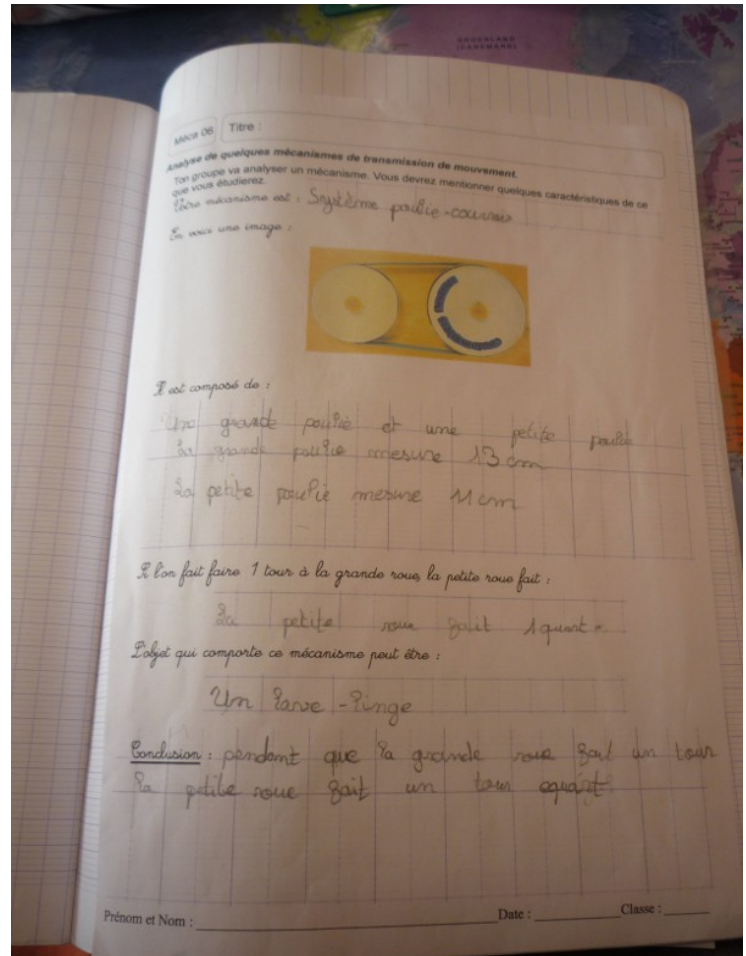 GROENLAND
(DANEMARK)
Méca 06
Titre :
Analyse de quelques mécanismes de transmission de mouvement.
Ton groupe va analyser un mécanisme. Vous devrez mentionner quelques caractéristiques de ce
que vous étudierez.
Votre mécanisme est : Système poulie-courroie
En voici une image :
Il est composé de :
Une grande poulie et une petite poulie
La grande poulie mesure 13 cm
La petite poulie mesure 11 cm
Si l'on fait faire 1 tour à la grande roue, la petite roue fait :
La petite roue fait 1 quart
L'objet qui comporte ce mécanisme peut être :
Un lave-linge
Conclusion : pendant que la grande roue fait un tour
la petite roue fait un tour equart
Prénom et Nom : Date : Classe :